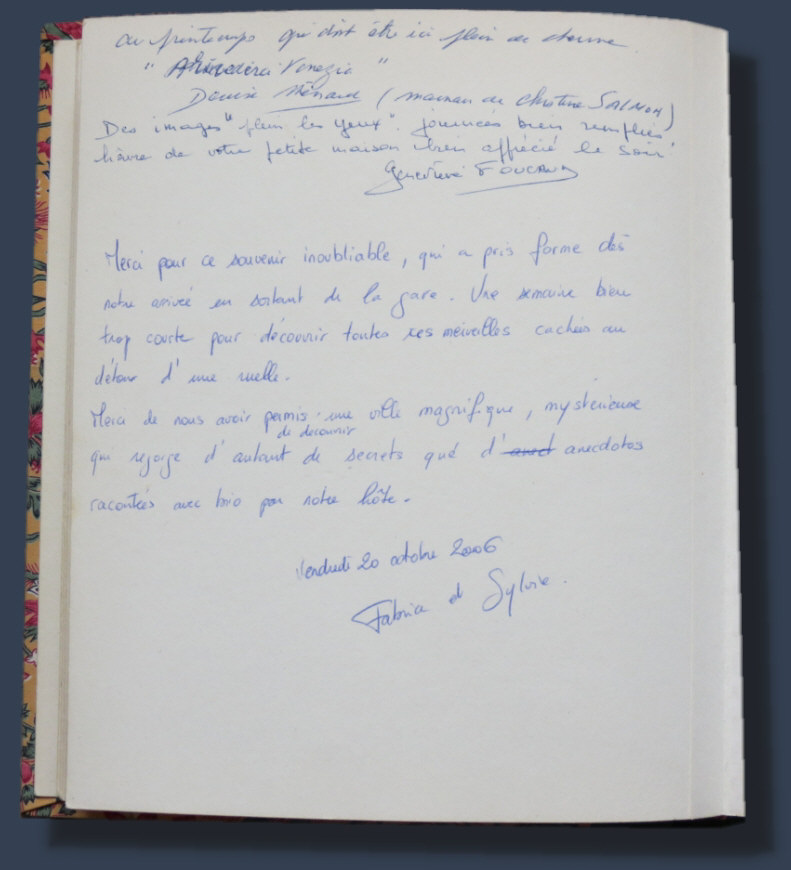 au printemps qui doit être ici plein de charme.
" Arivederci Venezia "
Denise Ménard (maman de Christine SALMON)
Des images "plein les yeux". journées bien remplies,
de votre petite maison bien apprécié le soir
Geneviève
Merci pour ce souvenir inoubliable, qui a pris forme dès
notre arrivée en sortant de la gare. Une semaine bien
trop courte pour découvrir toutes ces merveilles cachées au
détour d'une ruelle.
Merci de nous avoir permis une ville magnifique, mystérieuse
de découvrir
qui regorge d'autant de secrets que d' anecdotes
racontées avec brio par notre hôte.
Vendredi 20 octobre 2006
Fabrice et Sylvie.